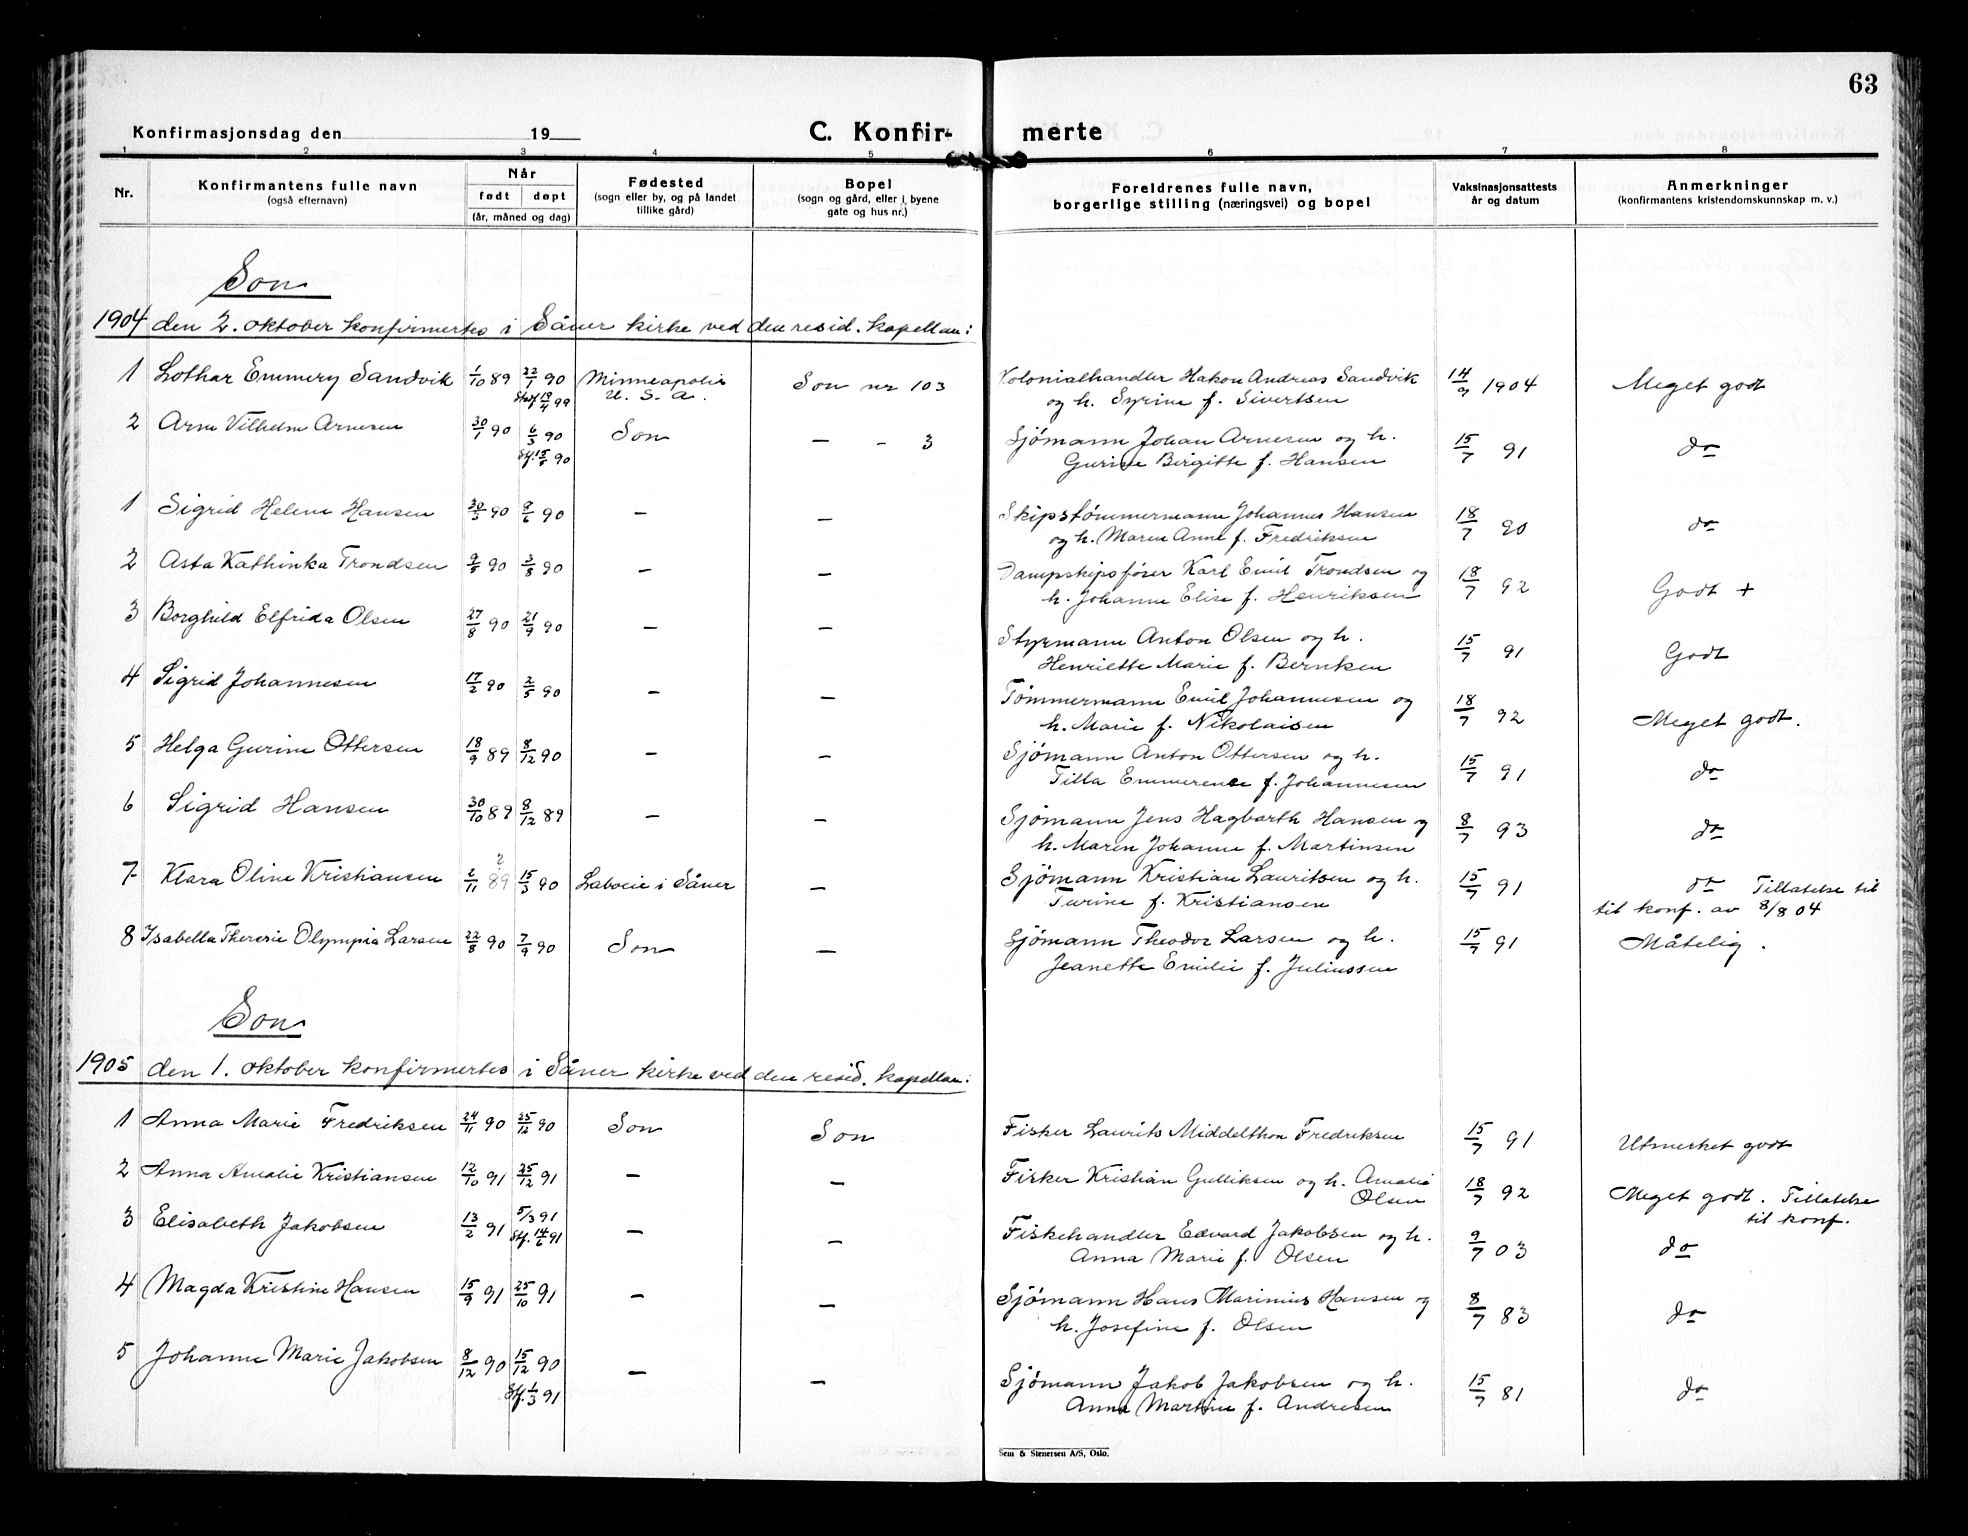 63
Konfirmasjonsdag den 19
C. Konfir- merte
1 2 3 4 5 6 7 8
Nr.
Konfirmantens fulle navn
(også efternavn)
Når
født døpt
(år, måned og dag)
Fødested
(sogn eller by, og på landet
tillike gård)
Bopel
(sogn og gård, eller i byene
gate og hus nr.)
Foreldrenes fulle navn,
borgerlige stilling (næringsvei) og bopel
Vaksinasjonsattests
år og datum
Anmerkninger
(konfirmantens kristendomskunnskap m. v.)
Son
1904 den 2. oktober konfirmertes i Såner kirke ved den resid. kapellan:
1 Lothar Emmery Sandvik 1/10 89 22/1 90 Minneapolis Son nr 103 Kolonialhandler Hakon Andreas Sandvik 14/9 1904 Meget godt
99 U. S. A. og h. Syrine f. Sivertsen
2 Arne Vilhelm Arnesen 30/1 90 6/3 90 Son — - 3 Sjömann Johan Arnesen og h. 15/7 91 do
Stf. 15/5 90 Gurine Birgitte f. Hansen
1 Sigrid Helene Hansen 30/3 90 8/6 90 — — Skipstömmermann Johannes Hansen 18/7 90 do
og h. Maren Anne f. Fredriksen
2 Asta Kathinka Trondsen 9/5 90 3/8 90 — — Dampskipsförer Karl Emil Trondsen og 18/7 92 Godt +
h. Johanne Elise f. Henriksen
3 Borghild Elfrida Olsen 27/8 90 21/9 90 — — Styrmann Anton Olsen og h. 15/7 91 Godt
Henriette Marie f. Berntsen
4 Sigrid Johannesen 17/2 90 2/5 90 — — Tömmermann Emil Johannesen og 18/7 92 Meget godt.
h. Marie f. Nikolaisen
5 Helga Gurine Ottersen 18/9 89 8/12 90 — — Sjömann Anton Ottersen og h. 15/7 91 do
Tilla Emmerense f. Johannesen
6 Sigrid Hansen 30/10 89 8/12 89 — — Sjömann Jens Hagbarth Hansen og 8/7 93 do
h. Maren Johanne f. Martinsen
7 Klara Oline Kristiansen 2/11 89 ? 15/3 90 Laboeie i Såner — Sjömann Kristian Lauritsen og h. 15/7 91 do Tillatelse til
Turine f. Kristiansen til konf. av 8/8 04
8 Isabella Theresie Olympia Larsen 22/8 90 7/9 90 Son — Sjömann Theodor Larsen og h. 15/7 91 Måtelig.
Jeanette Emilie f. Juliussen
Son
1905 den 1. oktober konfirmertes i Såner kirke ved den resid. kapellan:
1 Anna Marie Fredriksen 24/11 90 25/12 90 Son Son Fisker Laurits Middelthon Fredriksen 15/7 91 Utmerket godt
2 Anna Amalie Kristiansen 12/10 91 25/12 91 — — Fisker Kristian Gulliksen og h. Amalie 18/7 92 Meget godt. Tillatelse
Olsen til konf.
3 Elisabeth Jakobsen 13/2 91 5/3 91 — — Fiskehandler Edvard Jakobsen og h. 9/7 03 do
Stf. 14/6 91 Anna Marie f. Olsen
4 Magda Kristine Hansen 15/9 91 25/10 91 — — Sjömann Hans Marinius Hansen og 8/7 83 do
h. Josefine f. Olsen
5 Johanne Marie Jakobsen 8/12 90 15/12 90 — — Sjömann Jakob Jakobsen og h. 15/7 81 do
Stf. 1/3 91 Anna Martine f. Andresen
Sem & Stenersen A/S, Oslo.